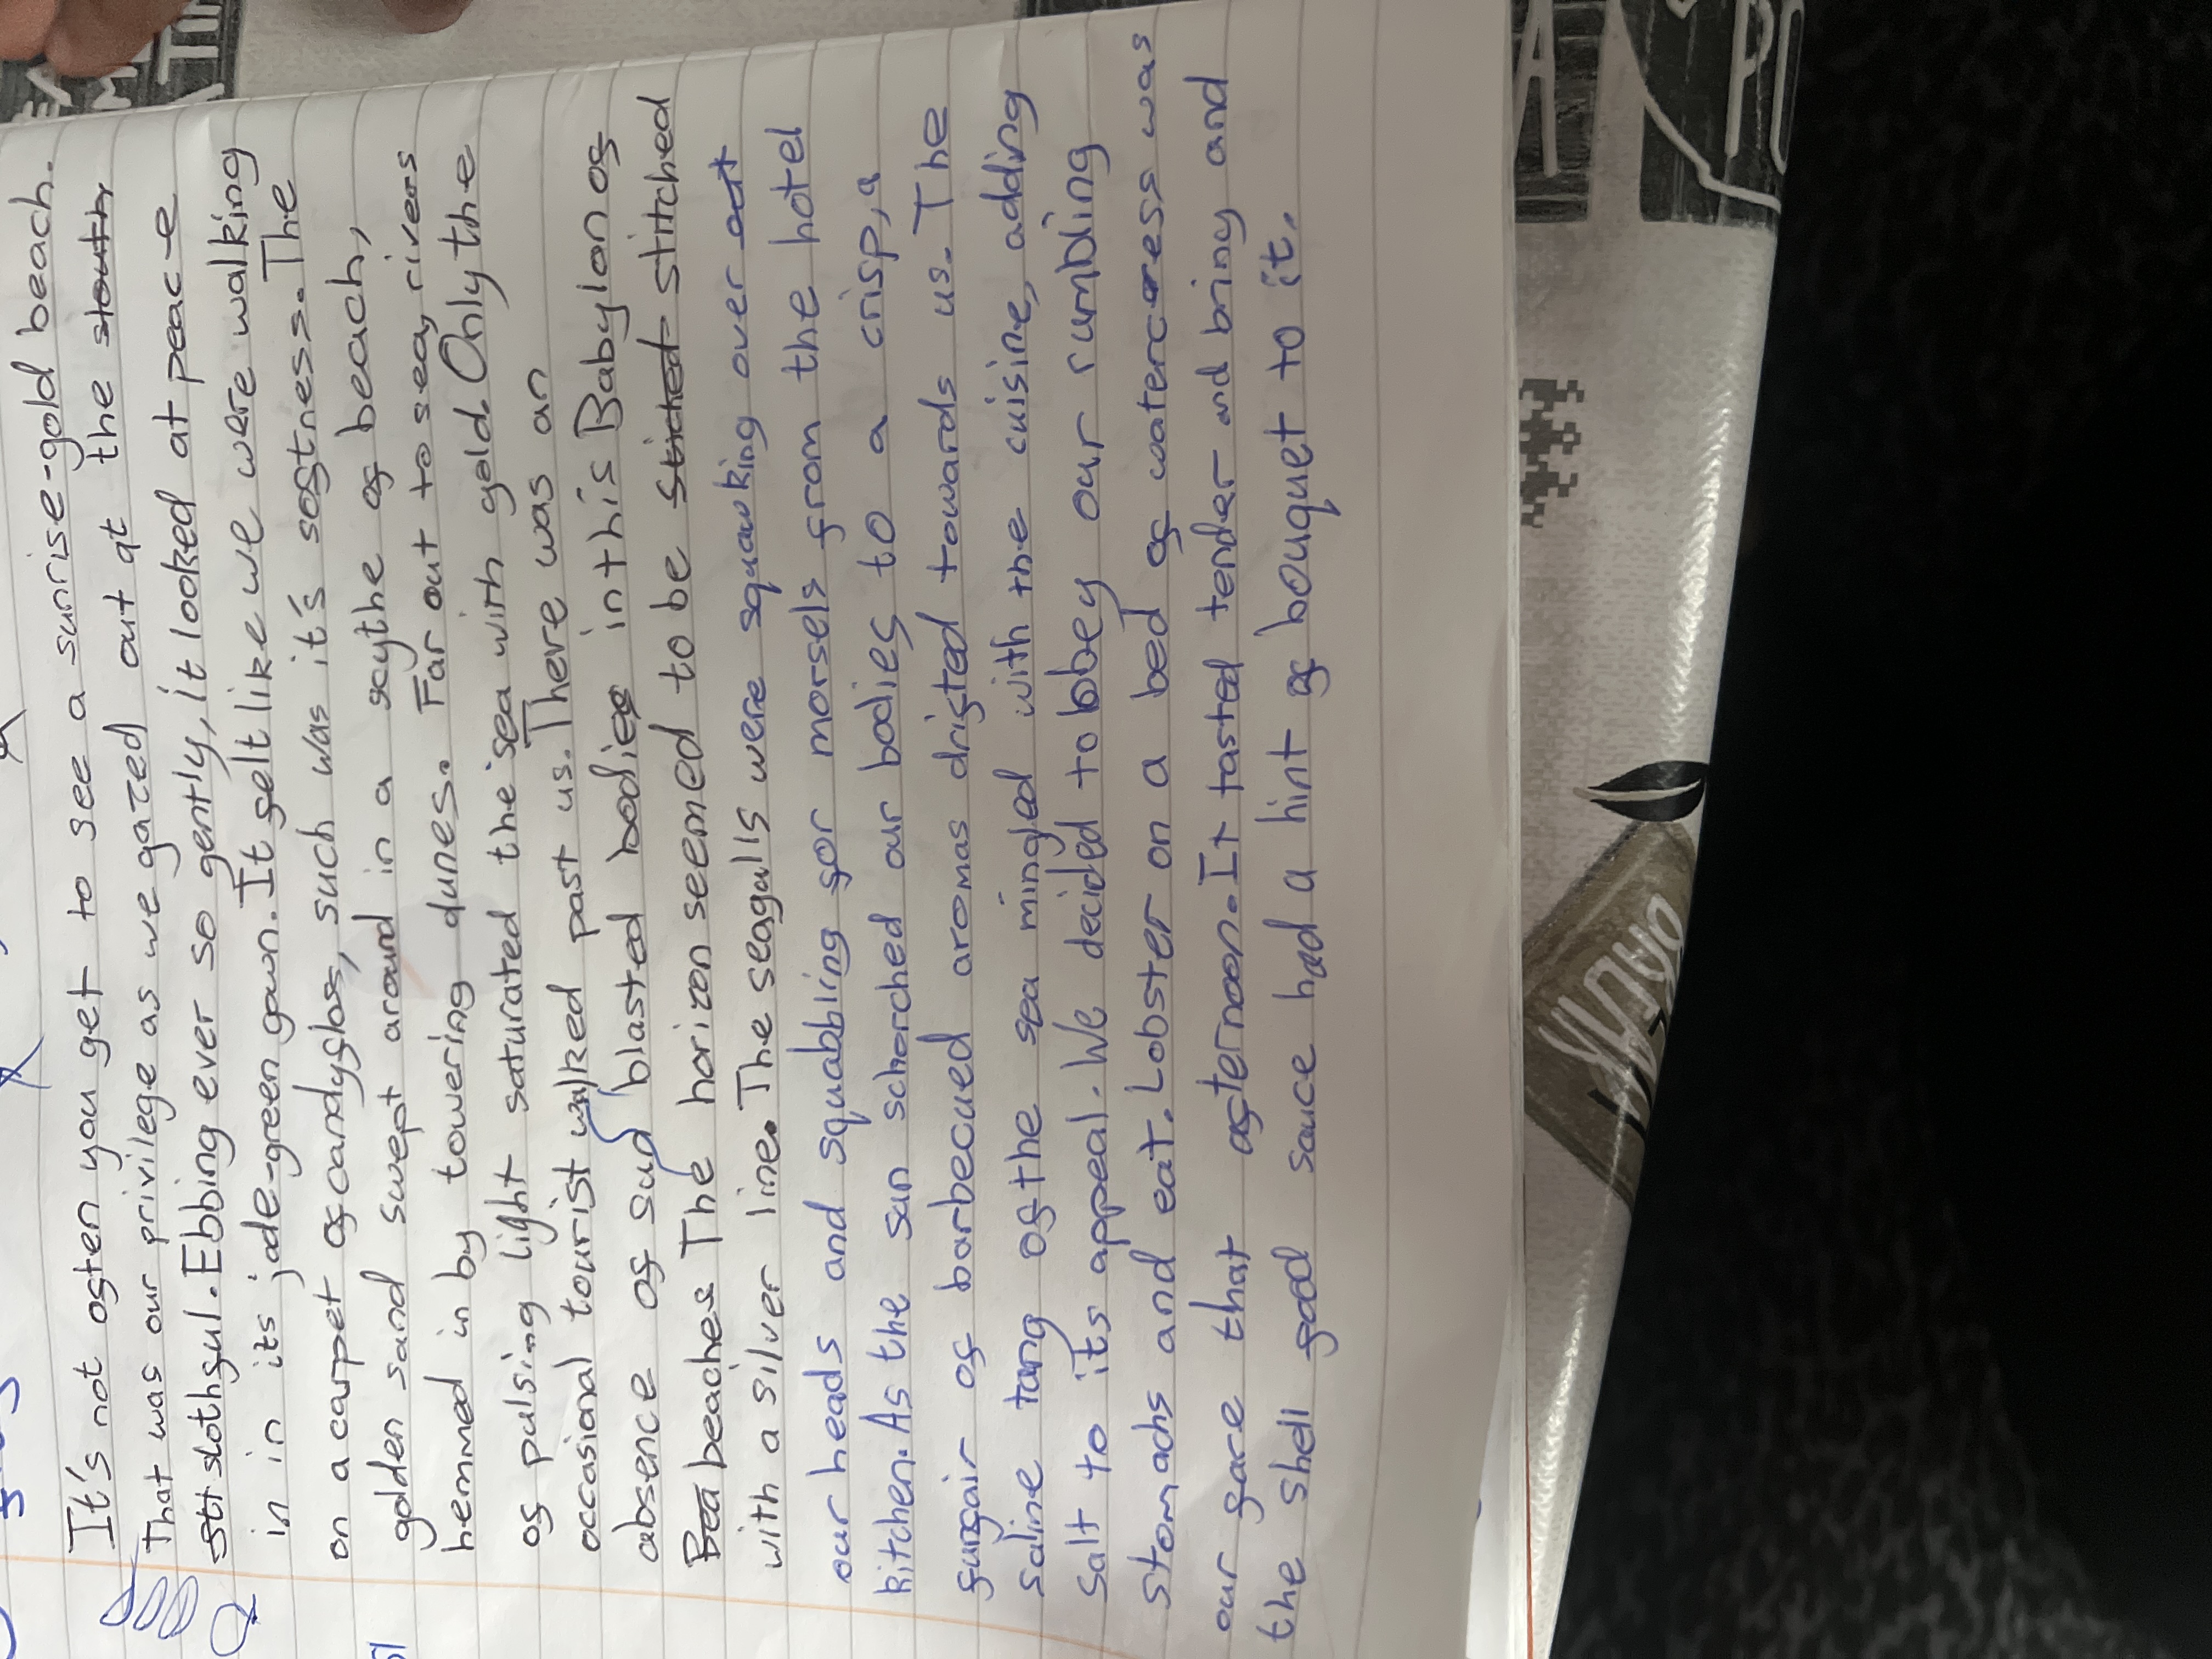 It's not often you get to see a sunrise-gold beach.
That was our privilege as we gazed out at the south
slothful. Ebbing ever so gently, it looked at peace
in in its jade-green gown. It felt like we were walking
on a carpet of candyfloss, such was it's softness. The
golden sand swept around in a scythe of beach,
hemmed in by towering dunes. Far out to sea, rivers
of pulsing light saturated the sea with gold. Only the
occasional tourist walked past us. There was an
absence of sun blasted bodies in this Babylon of
Bea beaches The horizon seemed to be stiched stitched
with a silver line. The seagalls were squawking over out
our heads and squabbling for morsels from the hotel
kitchen. As the sun schorched our bodies to a crisp, a
funfair of barbecued aromas drifted towards us. The
saline tang of the sea mingled with the cuisine, adding
salt to its appeal. We decided to obey our rumbling
stomachs and eat. Lobster on a bed of watercress was
our fare that afternoon. It tasted tender and briny and
the shell food sauce had a hint of bouquet to it.